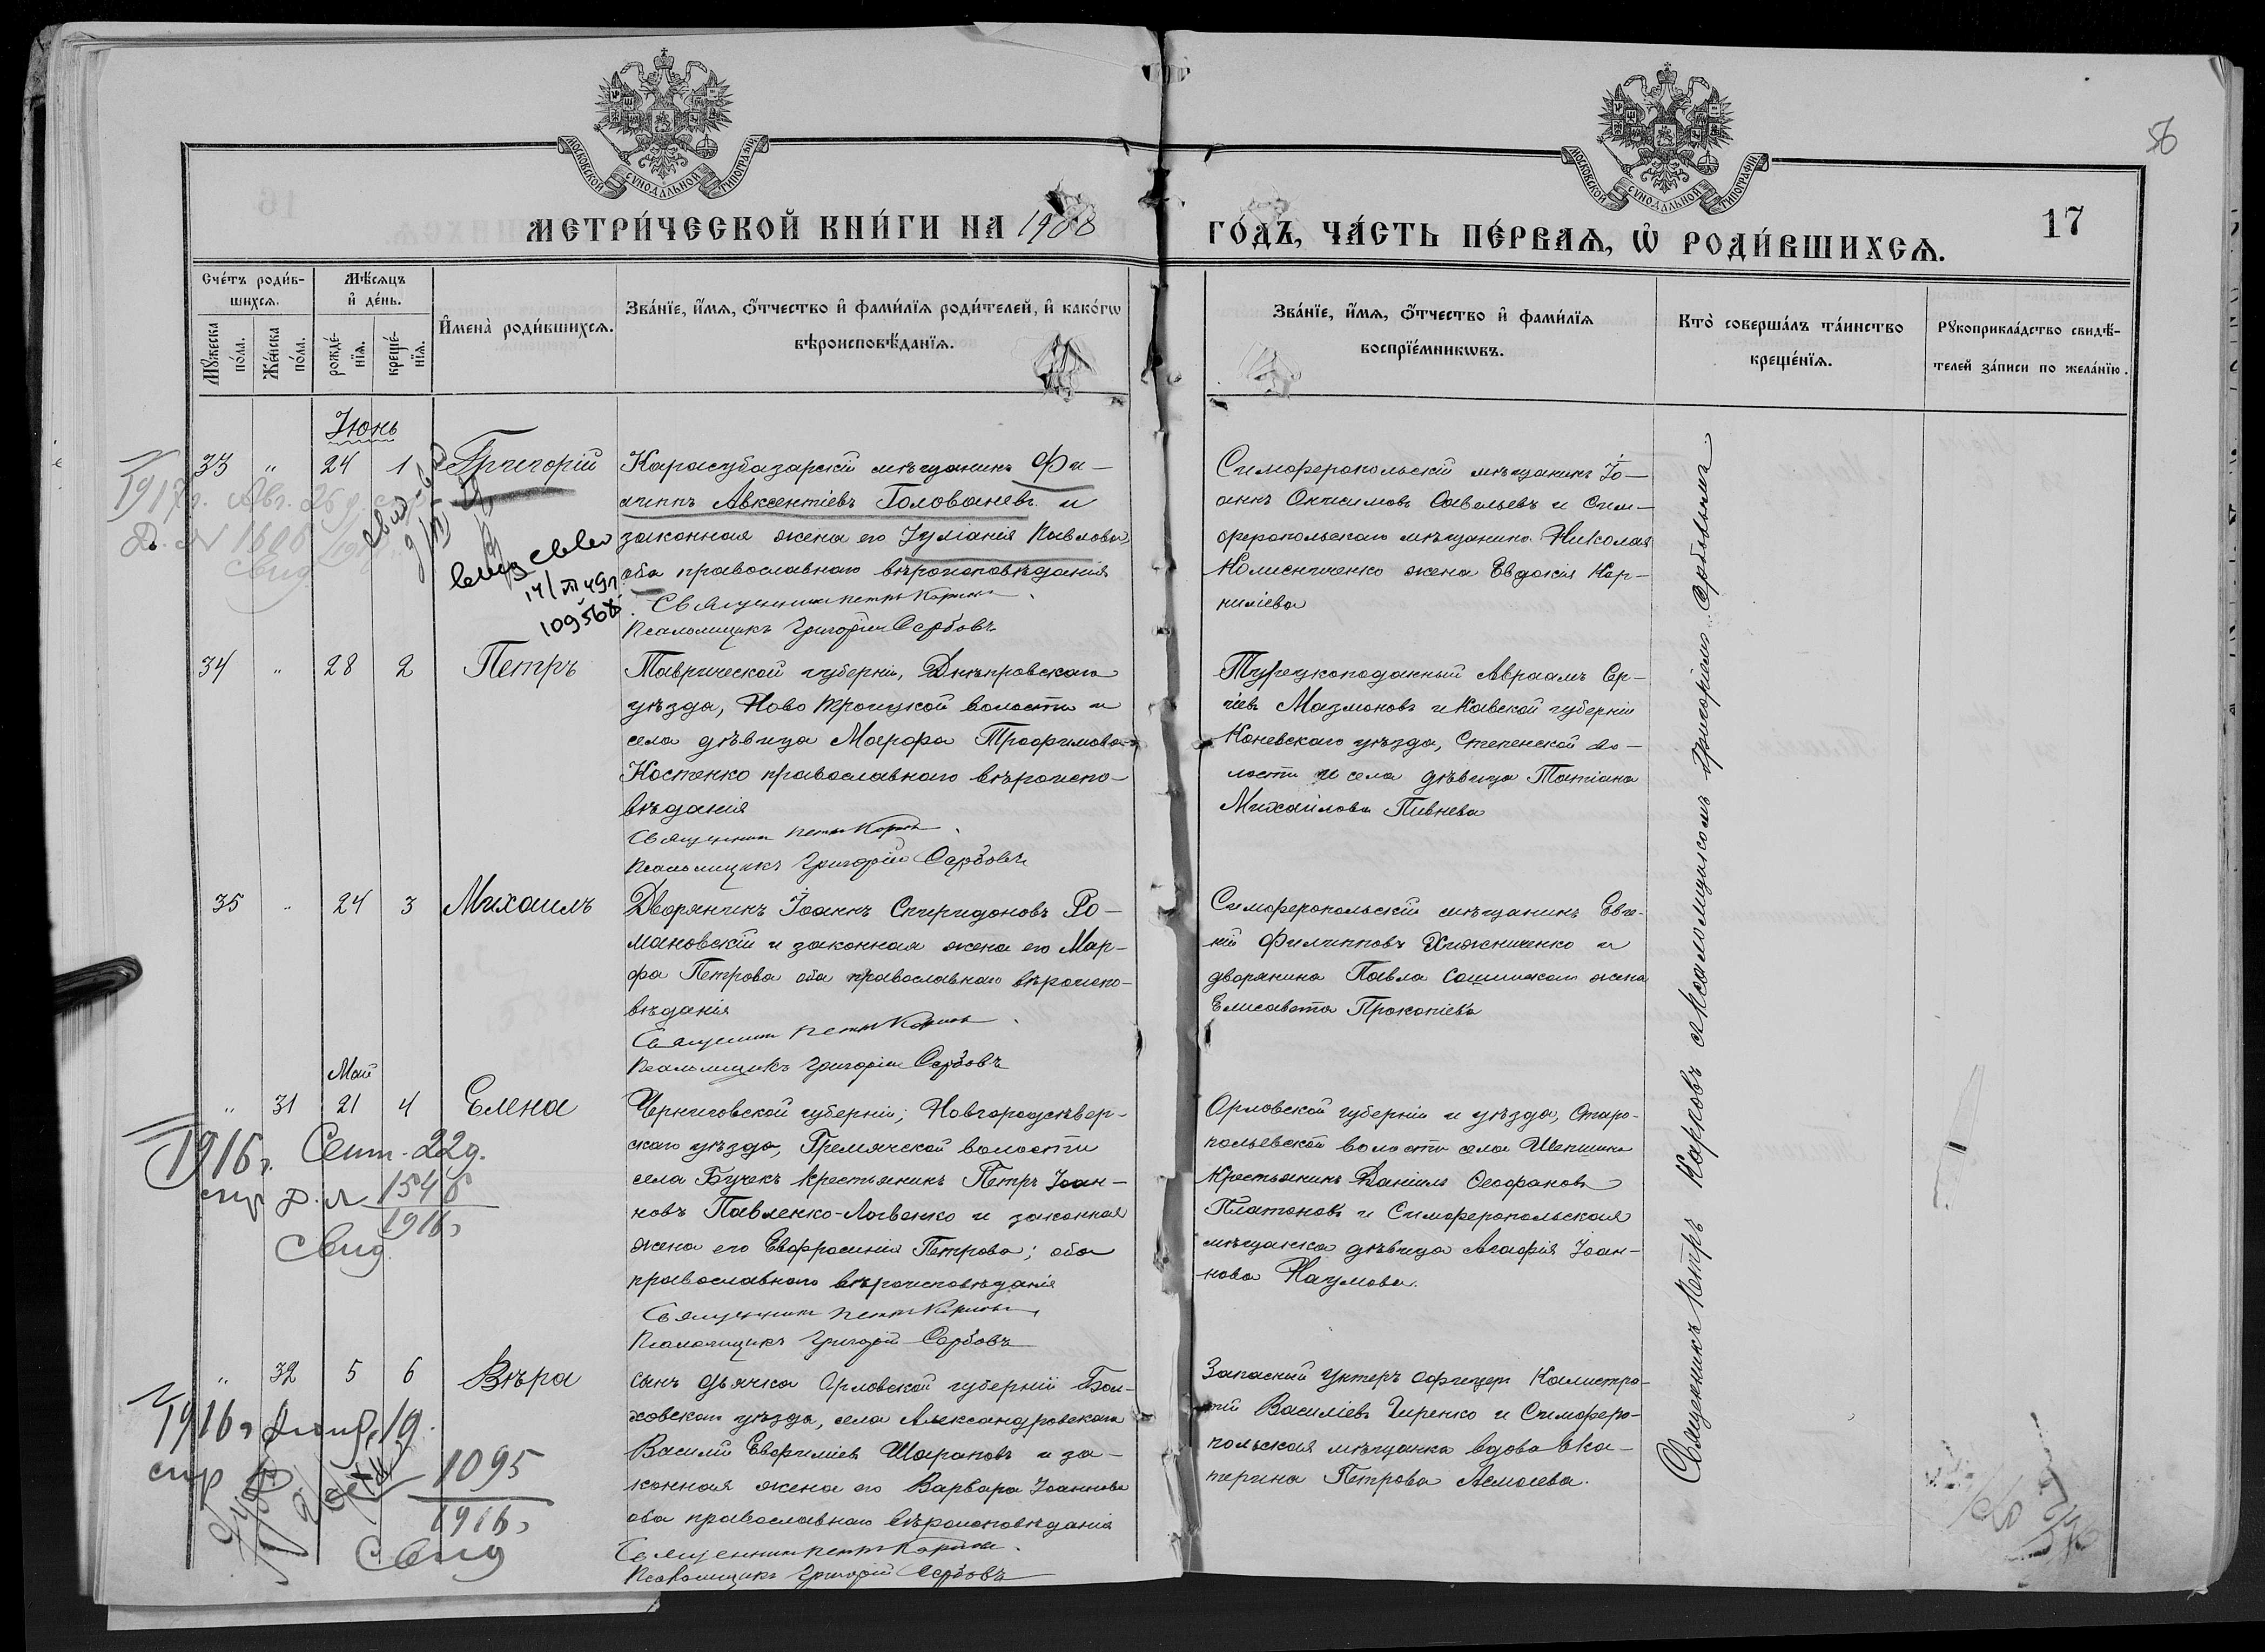 МОСКОВСКОЙ СѴНОДАЛЬНОЙ ТИПОГРАФІИ
МОСКОВСКОЙ СѴНОДАЛЬНОЙ ТИПОГРАФІИ
56
17
МЕТРИ́ЧЕСКОЙ КНИ́ГИ НА 1908
ГО́ДЪ, ЧА́СТЬ ПЕ́РВАѦ, Ѡ҆ РОДИ́ВШИХСѦ.
Сче́тъ роди́в-
шихсѧ.
Мꙋ́жеска
по́ла.
Же́нска
по́ла.
Мѣ́сѧцъ
и҆ де́нь.
рожде́-
нїѧ.
креще́-
нїѧ.
И҆мена̀ роди́вшихсѧ.
Зва́нїе, и҆́мѧ, ѻ҆́тчество и҆ фами́лїѧ роди́телей, и҆ како́гѡ
вѣроисповѣ́данїѧ.
Зва́нїе, и҆́мѧ, ѻ҆́тчество и҆ фами́лїѧ
воспрїе́мникѡвъ.
Кто̀ соверша́лъ та́инство
креще́нїѧ.
Рꙋкоприкла́дство свидѣ́-
телей за́писи по жела́нїю.
Іюнь
33 " 24 1 Григорій
Карасубазарскій мѣщанинъ Фи-
липпъ Авксентіевъ Голованевъ и
законная жена его Іуліанія Павлова,
оба православнаго вѣроисповѣданія
Священникъ Петръ Карповъ
Псаломщикъ Григорій Сербовъ
Симферопольскій мѣщанинъ Іо-
аннъ Онисимовъ Савельевъ и Сим-
феропольскаго мѣщанина Николая
Колисниченко жена Евдокія Кор-
ниліева
1917г. Авг. 26 д.
Д. № 1606
Свид
14/III 49г.
109568
34 " 28 2 Петръ
Таврической губерніи, Днѣпровскаго
уѣзда, Ново Троицкой волости и
села дѣвица Марфа Трофимова
Костенко православнаго вѣроиспо-
вѣданія
Священникъ Петръ Карповъ
Псаломщикъ Григорій Сербовъ
Турецкоподанный Авраамъ Сер-
гіевъ Мазмановъ и Кіевской губерніи
Каневскаго уѣзда, Степенской во-
лости и села дѣвица Татіана
Михайлова Пивнева
35 " 24 3 Михаилъ
Дворянинъ Іоаннъ Спиридоновъ Ро-
мановскій и законная жена его Мар-
фа Петрова оба православнаго вѣроиспо-
вѣданія
Священникъ Петръ Карповъ
Псаломщикъ Григорій Сербовъ
Симферопольскій мѣщанинъ Евге-
ній Филипповъ Хижниченко и
дворянина Павла жена
Елисавета Прокопіева
Май
" 31 21 4 Елена
Черниговской губерніи, Новгородсѣвер-
скаго уѣзда, Гремячской волости
села Бучекъ крестьянинъ Петръ Іоан-
новъ Павленко-Логвенко и законная
жена его Евфросинія Петрова; оба
православнаго вѣроисповѣданія
Священникъ Петръ Карповъ
Псаломщикъ Григорій Сербовъ
Орловской губерніи и уѣзда, Старо-
польевской волости села Шепшина
крестьянинъ Даніилъ Ѳеофановъ
Платоновъ и Симферопольская
мѣщанка дѣвица Агафія Іоан-
нова Наумова.
1916г. Сент. 22 д.
спр д. № 1546
1916г
Свид.
" 32 5 6 Вѣра
сынъ дьячка Орловской губерніи Бол-
ховскаго уѣзда, села Александровскаго
Василій Евфиміевъ Шараповъ и за-
конная жена его Варвара Іоаннова
оба православнаго вѣроисповѣданія
Священникъ Петръ Карповъ
Псаломщикъ Григорій Сербовъ
Запасный Унтеръ офицеръ Калистра-
тій Василіевъ Гиренко и Симферо-
польская мѣщанка вдова Ека-
терина Петрова Асмолева.
1916г
спр
1095
1916г
Свид
Священникъ Петръ Карповъ съ Псаломщикомъ Григоріемъ Сербовымъ